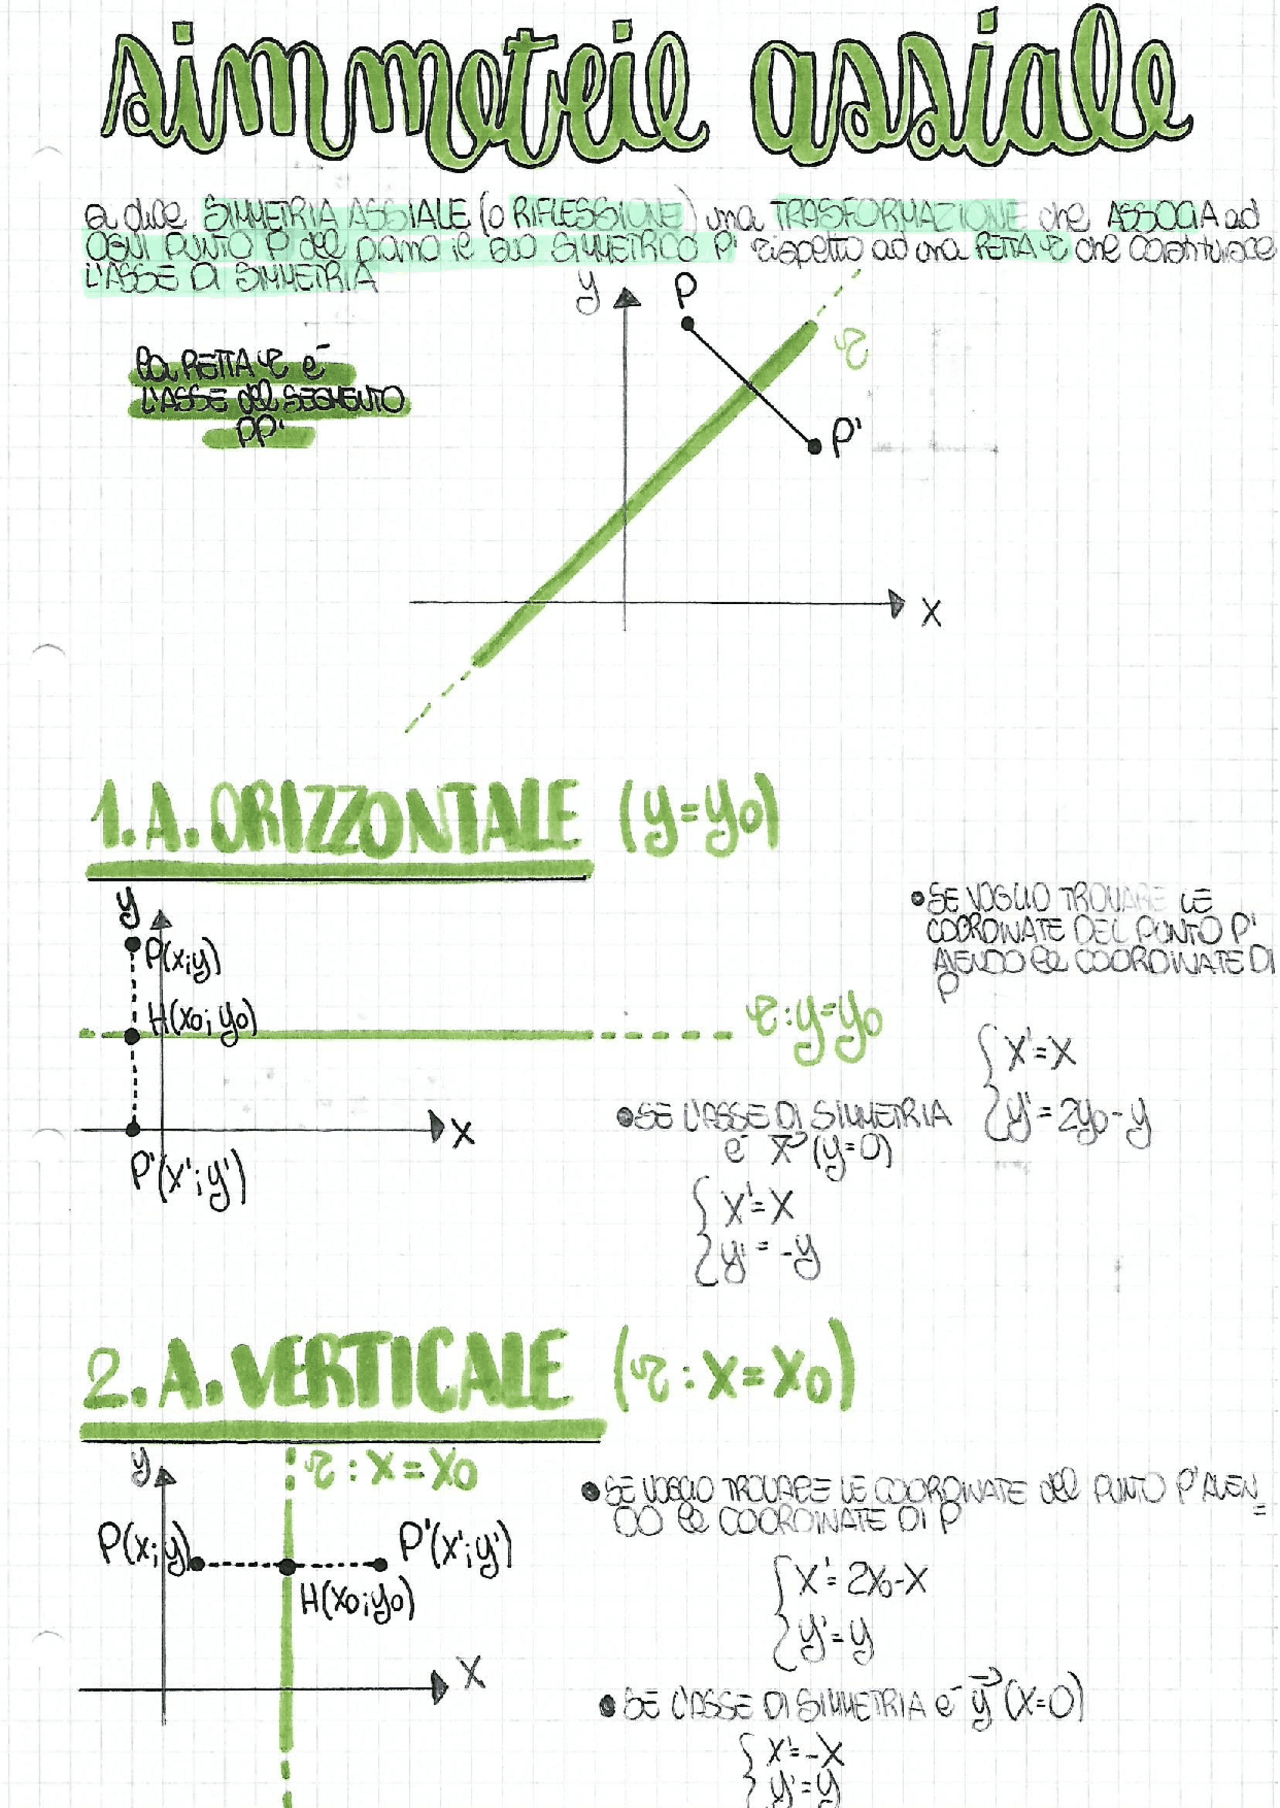 simmetrie assiale
si dice SIMMETRIA ASSIALE (o RIFLESSIONE) una TRASFORMAZIONE che ASSOCIA ad
OGNI PUNTO P del piano il suo SIMMETRICO P' rispetto ad una RETTA r che costituisce
L'ASSE DI SIMMETRIA
y
P
r
P'
x
la RETTA r e'
L'ASSE del SEGMENTO
PP'
1. A. ORIZZONTALE (y=y0)
y
P(x;y)
H(x0; y0)
r: y=y0
x
P'(x'; y')
• SE VOGLIO TROVARE LE
COORDINATE DEL PUNTO P'
AVENDO le COORDINATE DI
P
{ x' = x
{ y' = 2y0 - y
• SE L'ASSE DI SIMMETRIA
e' x→ (y=0)
{ x' = x
{ y' = -y
2. A. VERTICALE (r: x=x0)
y
r: x=x0
P(x;y)
P'(x'; y')
H(x0; y0)
x
• SE VOGLIO TROVARE LE COORDINATE del PUNTO P' AVEN=
DO le COORDINATE DI P
{ x' = 2x0 - x
{ y' = y
• SE L'ASSE DI SIMMETRIA e' y→ (x=0)
{ x' = -x
{ y' = y